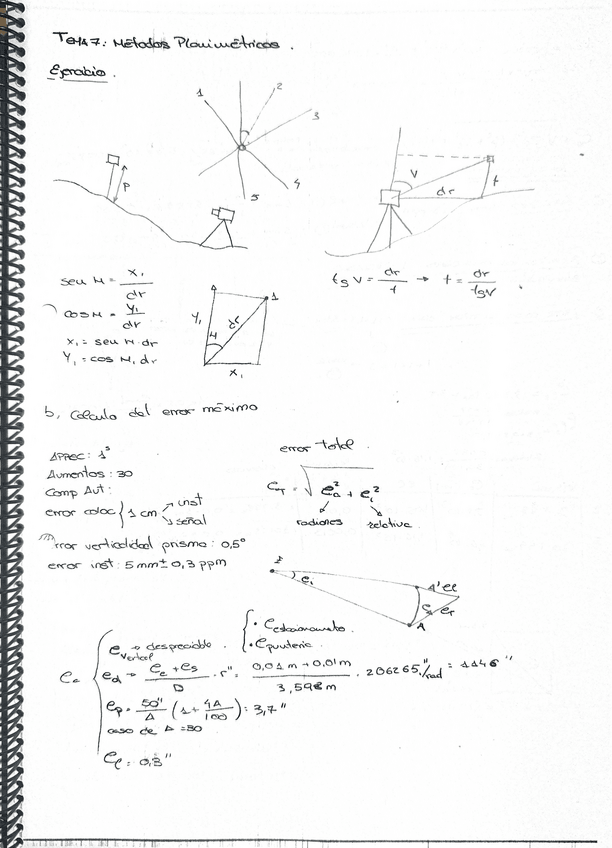 Tema 7: Métodos Planimétricos.
Ejercicio.
1
2
3
4
5
P
V
dr
t
sen H = x₁/dr
cos H = y₁/dr
x₁ = sen H · dr
Y₁ = cos H · dr
Y₁
H
dr
1
X₁
tg V = dr/t → t = dr/tgV
b, Calculo del error máximo
Aprec: 1ˢ
Aumentos: 30
Comp Aut:
error coloc { 1 cm → inst
→ señal
error verticalidad prisma: 0,5°
error inst: 5mm ± 0,3 ppm
error total.
e_T = √(e_a² + e_i²)
radianes
relativa
E
e_i
A'
A
e_T
e_a { e_vertical → despreciable. { · e_estacionamiento.
· e_puntería.
e_d → (e_e + e_s)/D · r" = (0,01 m + 0,01 m)/3,598 m · 206265"/rad = 1146"
e_p = 50"/A (1 + 4A/100) = 3,7"
caso de A = 30
e_l = 0,3"